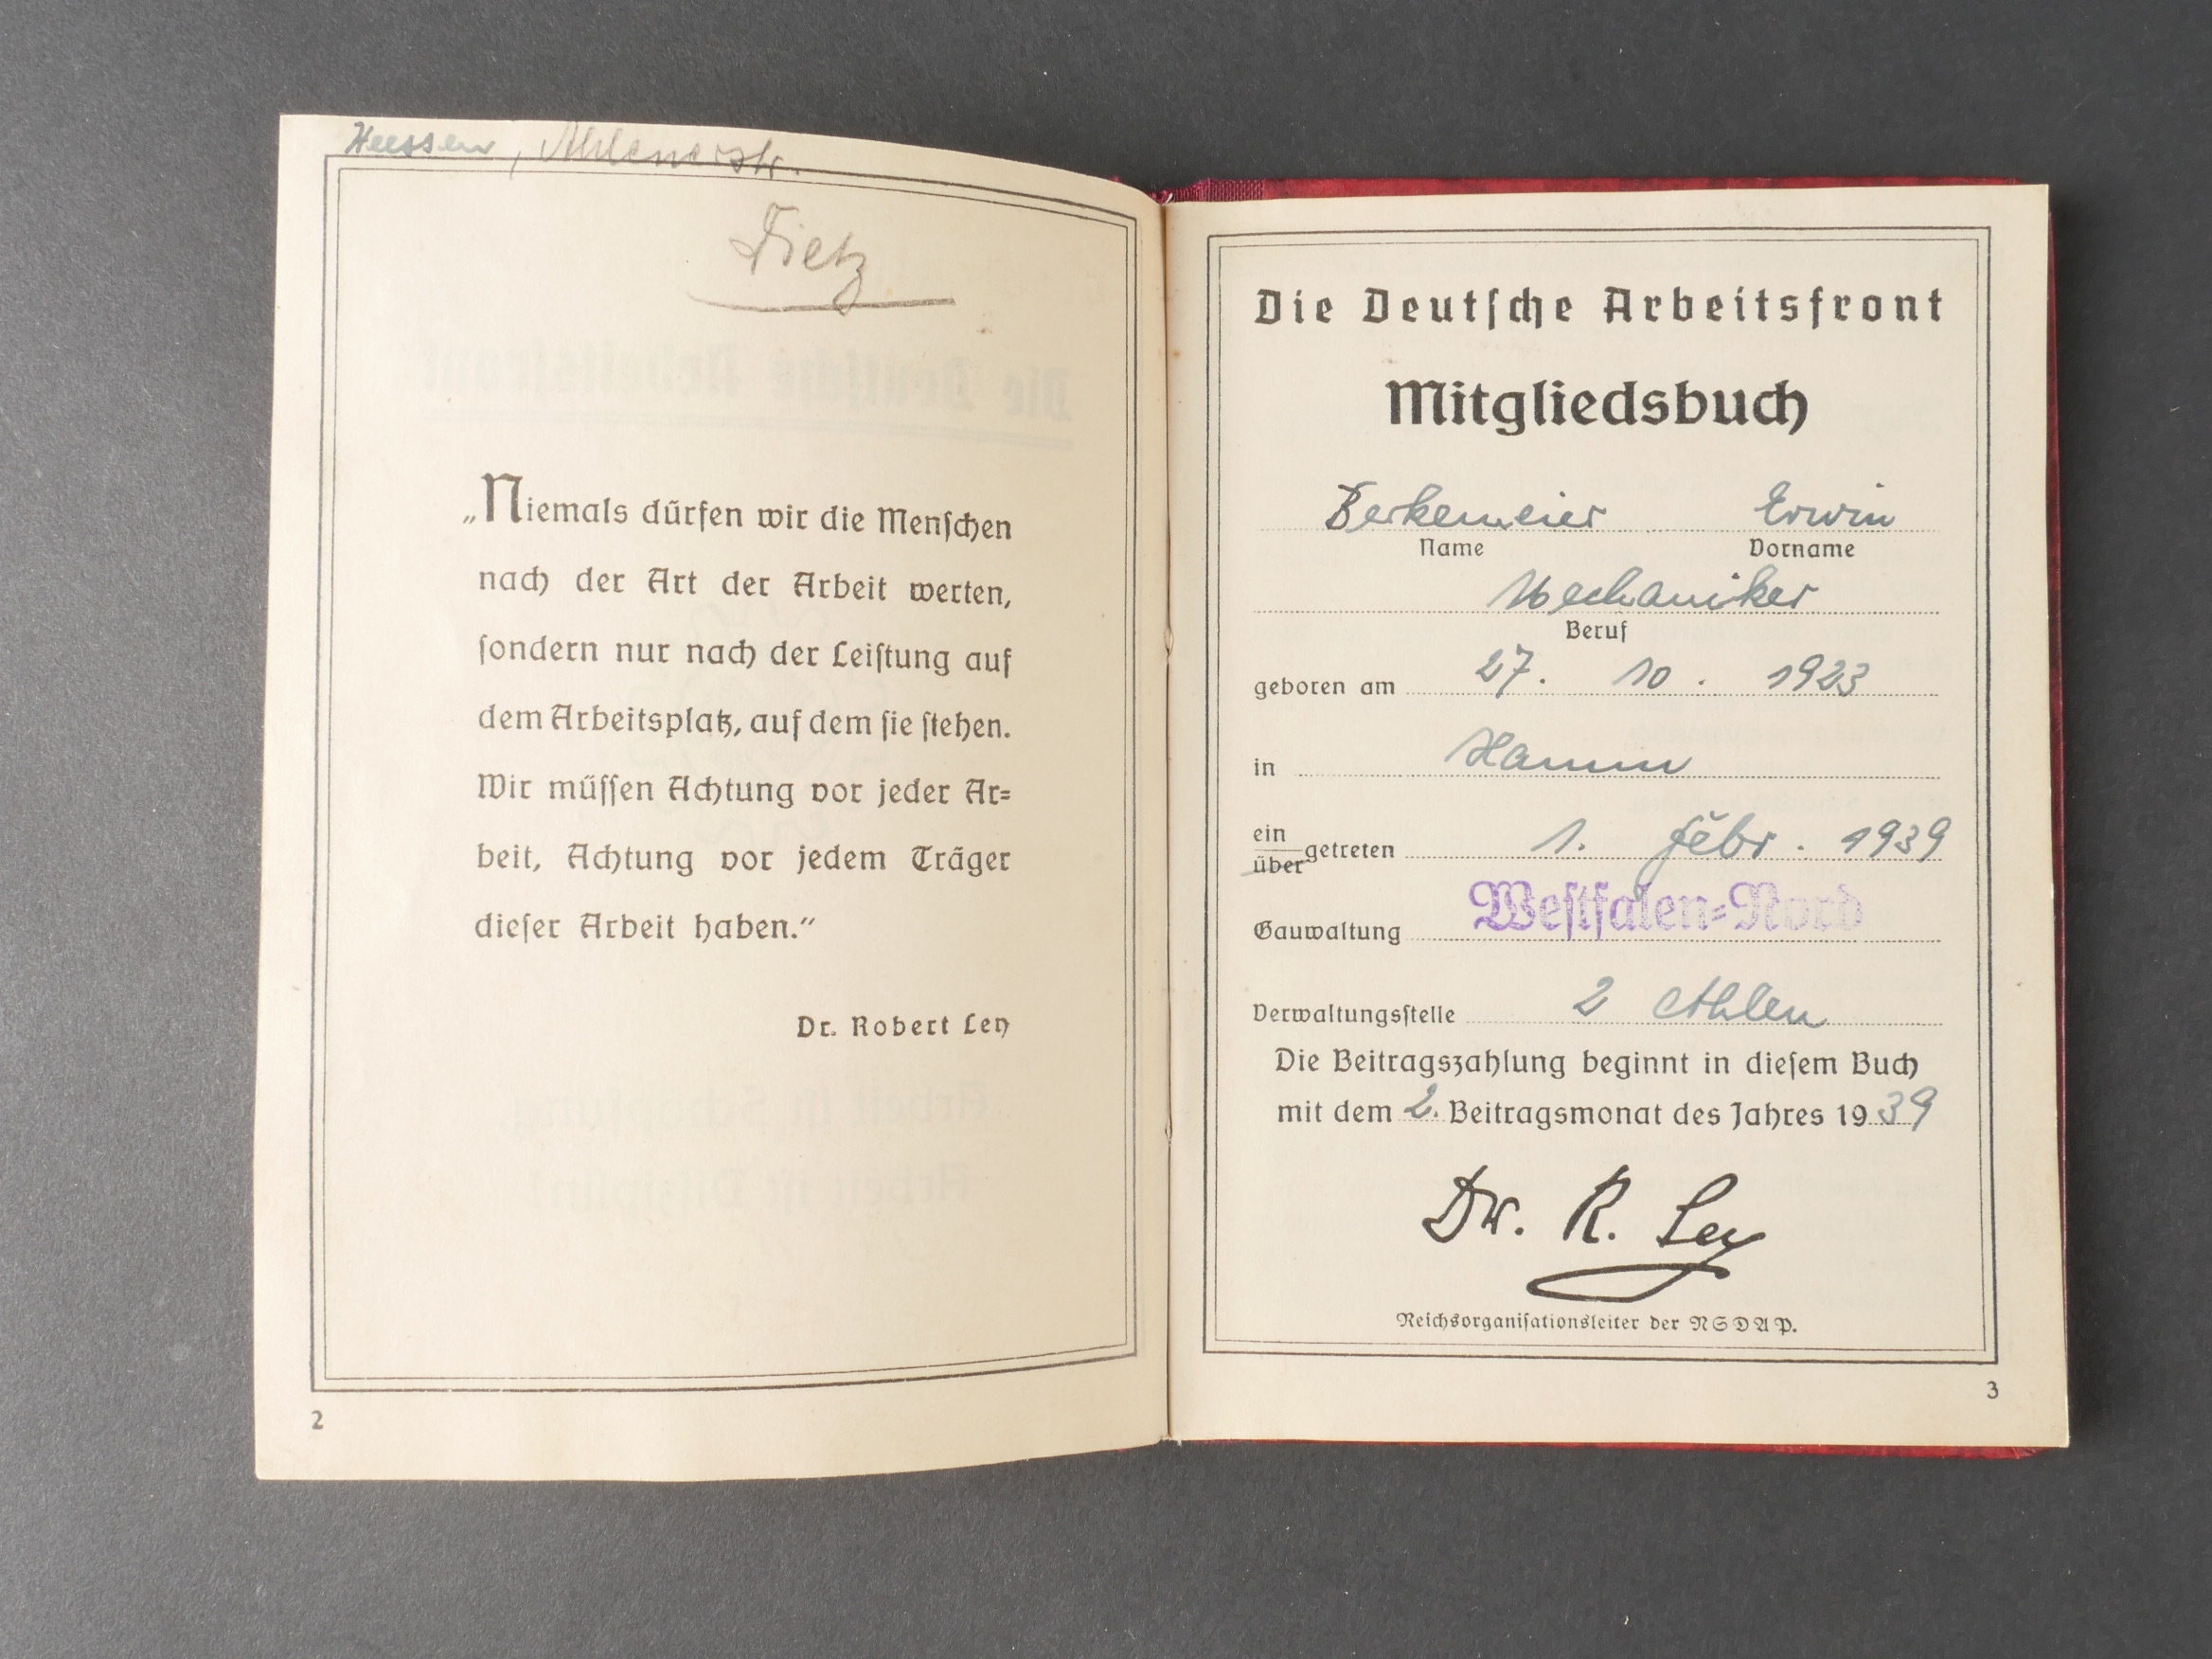 Heessen, Ahlenerstr.
Tietz
„Niemals dürfen wir die Menschen
nach der Art der Arbeit werten,
sondern nur nach der Leistung auf
dem Arbeitsplatz, auf dem sie stehen.
Wir müssen Achtung vor jeder Ar=
beit, Achtung vor jedem Träger
dieser Arbeit haben.“
Dr. Robert Ley
2
Die Deutsche Arbeitsfront
Mitgliedsbuch
Berkemeier Erwin
Name Vorname
Mechaniker
Beruf
geboren am 27. 10. 1923
in Hamm
ein
über getreten 1. Febr. 1939
Gauwaltung Westfalen=Nord
Verwaltungsstelle 2 Ahlen
Die Beitragszahlung beginnt in diesem Buch
mit dem 2. Beitragsmonat des Jahres 1939
Dr. R. Ley
Reichsorganisationsleiter der NSDAP.
3